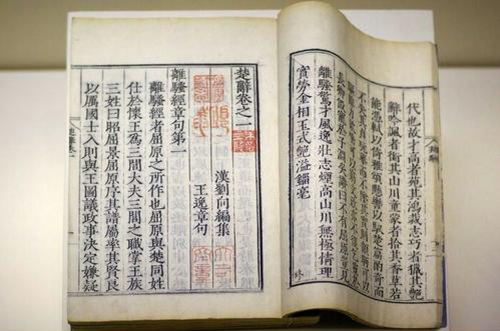 代也故才高者菀其鴻裁志巧者獵其艷
辭吟諷者銜其山川童蒙者拾其香草若
能憑軾以倚雅頌懸轡以馭楚篇酌奇而
離騷驚才風逸壯志煙高山川無極情理
實勞金相玉式艷溢錙毫
楚辭卷之一
漢劉向編集
王逸章句
離騷經章句第一
離騷經者屈原之所作也屈原與楚同姓
仕於懷王為三閭大夫三閭之職掌王族
三姓曰昭屈景屈原序其譜屬率其賢良
以厲國士入則與王圖議政事決定嫌疑